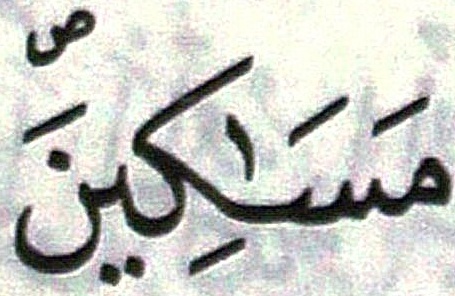 مَسَٰكِينَۖ ص